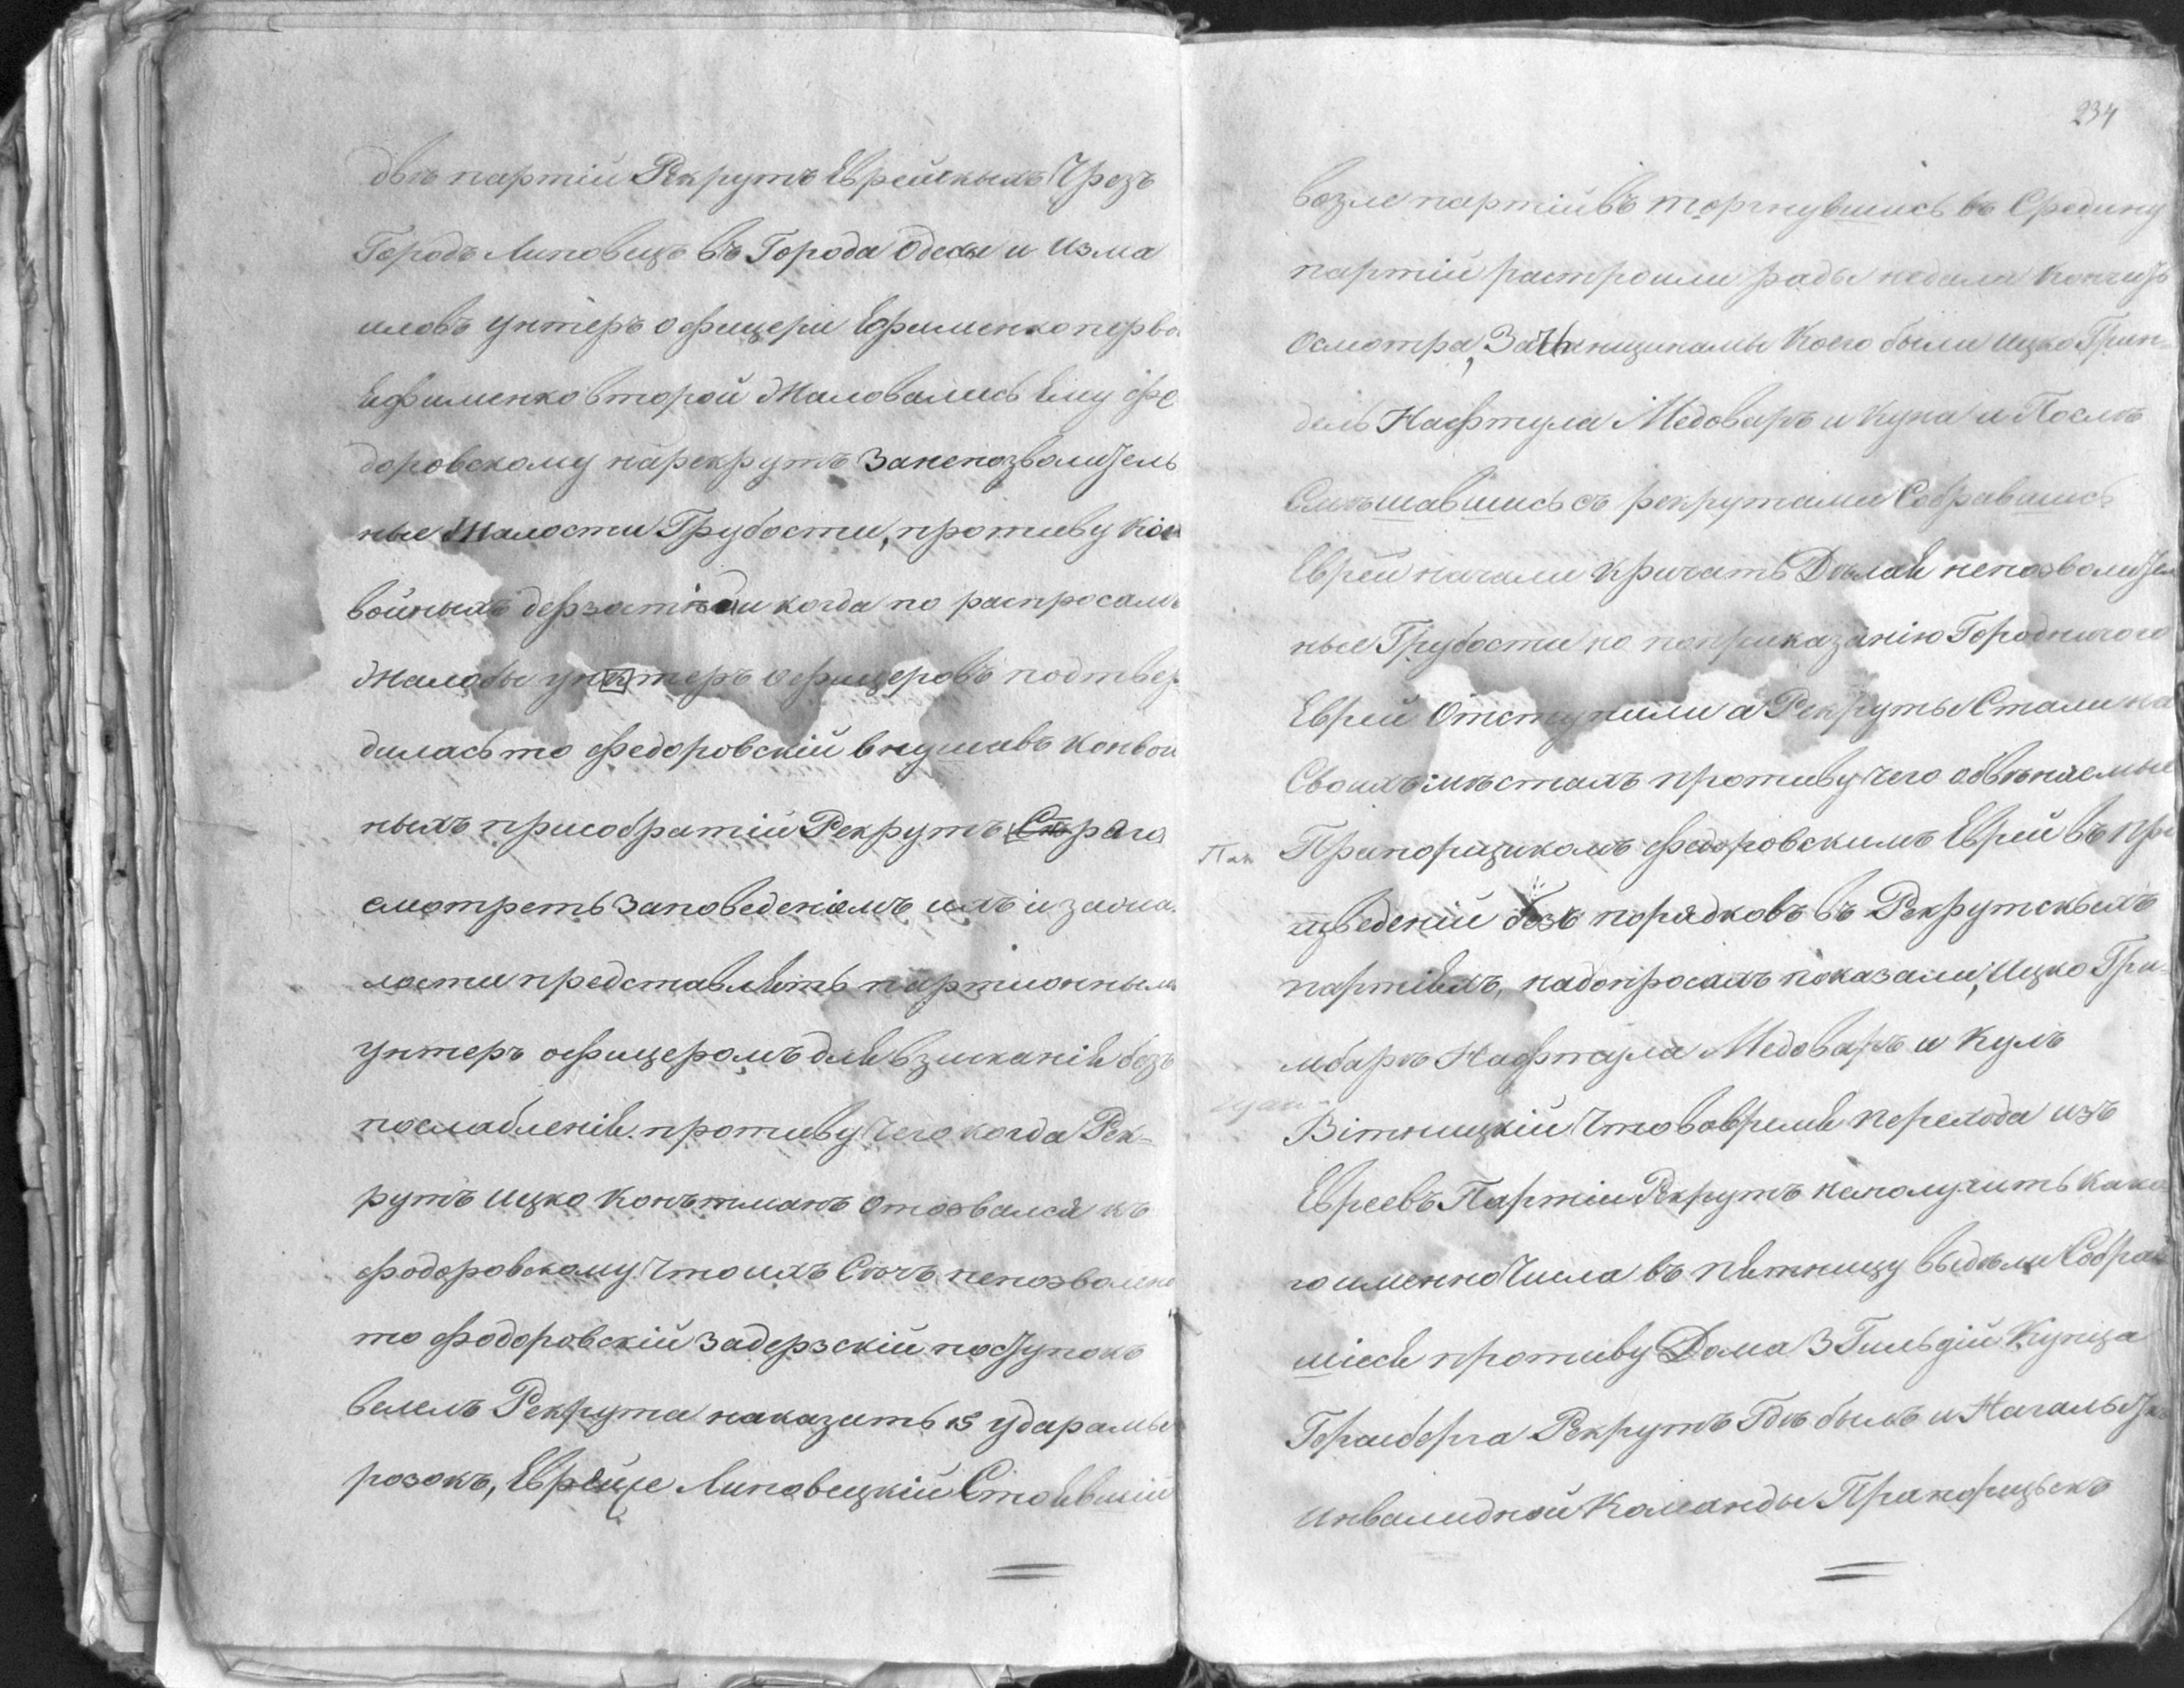 двѣ партіи Рекрутъ Еврейскыхъ Чрезъ
Городъ Липовецъ въ Города Одесы и Изма
иловъ унтеръ офицери Ефименко перво
Ефименко второй Жаловались Ему Фе
доровскому нарекрутъ Занепозволитель
ные Шалости Грубости, противу Кон
войныхъ дерзости и когда по распросамъ
Жалобы унтеръ офицеровъ подтвер
дилась то Федоровскій внушавъ Конвой
ныхъ присобратіи Рекрутъ Строго
смотреть Заповеденіемъ ихъ и зашла
лости представлять партионнымъ
унтеръ офицеромъ для взысканія безъ
послабленія. противу чего когда Рек-
рутъ Ицко Конътманъ Отозвался къ
Федоровскому Что ихъ Сечъ непозволено
то Федоровскій Задерзскій поступокъ
велелъ Рекрута наказать 15 ударамы
розокъ, Еврейще Липовецкіи Стоявшіи
234
возле партіи въ торгнувшись въ Средину
партіи растроили рады недали Кончить
Осмотра, Зачинщикамы Коего были Ицко Грин-
дель Нафтула Медоваръ и Купа и Послѣ
Смѣшавшись съ рекрутами Собравшись
Евреи начали Кричать Дѣлая непозволител
ные Грубости но поприказанію Городничого
Евреи Отступили а Рекруты Стали на
Своихъ мѣстахъ противу чего обвѣняемые
Прапорщикомъ Федоровскимъ Евреи въ про
изведеніи безъ порядковъ въ Рекрутскыхъ
партіяхъ, надопросахъ показали, Ицко Гри-
мбаръ Нафтула Медоваръ и Кулъ
Вітницкій Что вовремя перехода изъ
Евреевъ Партіи Рекрутъ неполучить како
го именно Числа въ пятницу выдѣли Собрав
шися противу Дома 3 Гильдіи Купца
Герисберга Рекрутъ Гдѣ былъ и Начальбст
инвалидной Команды Прапорщыкъ